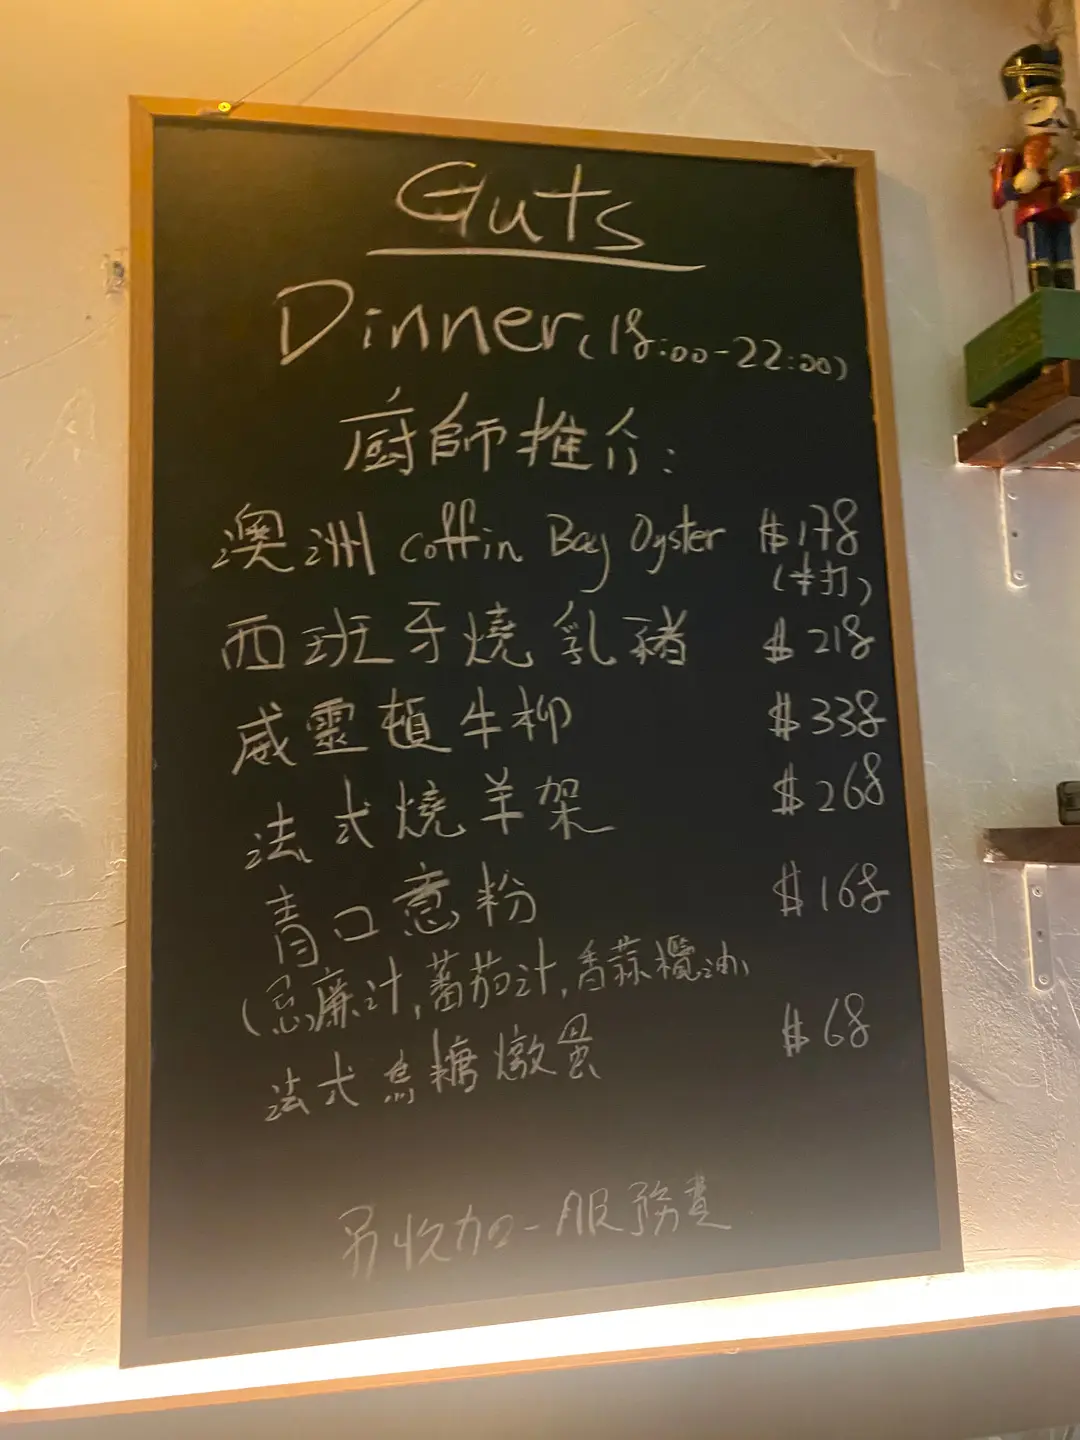 Guts
Dinner (18:00-22:00)
廚師推介:
澳洲 Coffin Bay Oyster $178
(半打)
西班牙燒乳豬 $218
威靈頓牛柳 $338
法式燒羊架 $268
青口意粉 $168
(忌廉汁,蕃茄汁,香蒜欖油)
法式焦糖燉蛋 $68
另收加一服務費